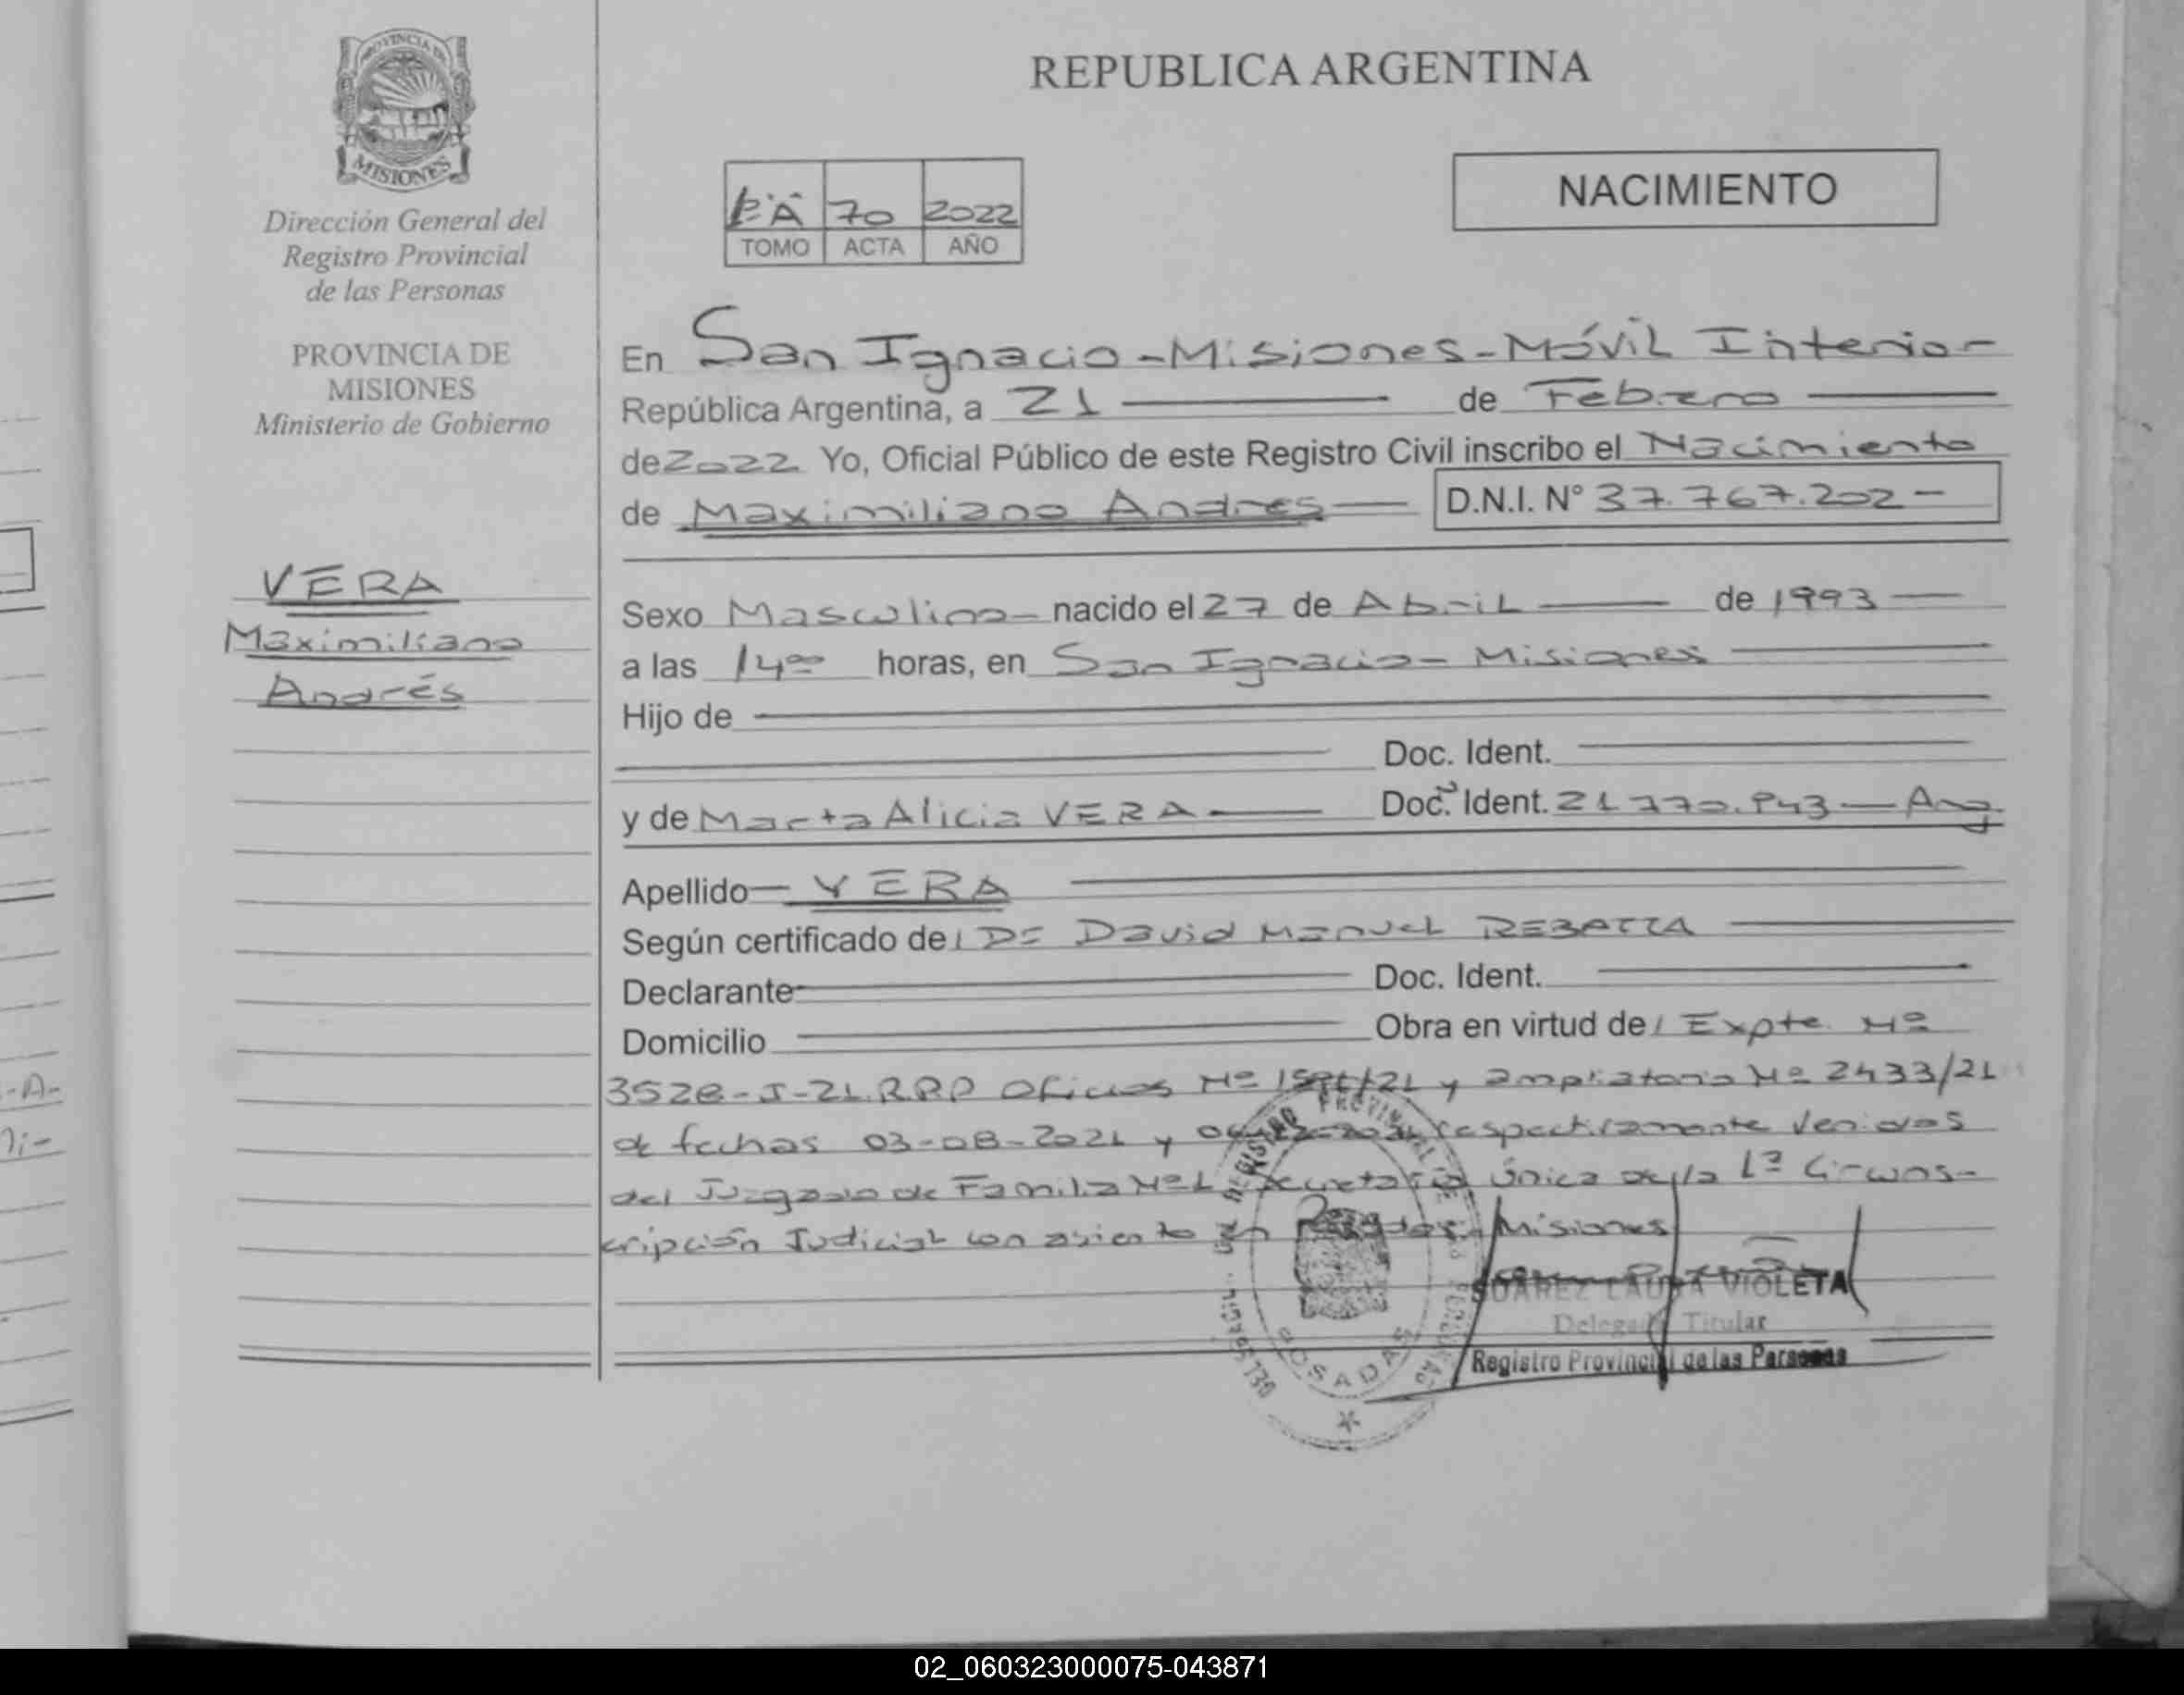 PROVINCIA DE
MISIONES
Dirección General del
Registro Provincial
de las Personas
PROVINCIA DE
MISIONES
Ministerio de Gobierno
VERA
Maximiliano
Andrés
REPUBLICA ARGENTINA
70 2022
TOMO ACTA AÑO
NACIMIENTO
En San Ignacio-Misiones-Móvil Interior
República Argentina, a 21 de Febrero
de 2022 Yo, Oficial Público de este Registro Civil inscribo el Nacimiento
de Maximiliano Andres D.N.I. N° 37.767.202-
Sexo Masculino nacido el 27 de Abril de 1993
a las 14 00 horas, en San Ignacio - Misiones
Hijo de
Doc. Ident.
y de Marta Alicia VERA Doc. Ident. 21.770.943 - Arg.
Apellido VERA
Según certificado de David Manuel
Declarante Doc. Ident.
Domicilio Obra en virtud de Expte. Nº
3528-J-21.RPP Oficios Nº y ampliatorio Nº 2433/21
de fechas 03-08-2021 y respectivamente venidos
del Juzgado de Familia Nº1 Secretaría Única de la 1ª Circuns-
cripción Judicial con asiento en Posadas Misiones
REGISTRO PROVINCIAL DE LAS PERSONAS
POSADAS
SUAREZ LAURA VIOLETA
Delegada Titular
Registro Provincial de las Personas
02_060323000075-043871